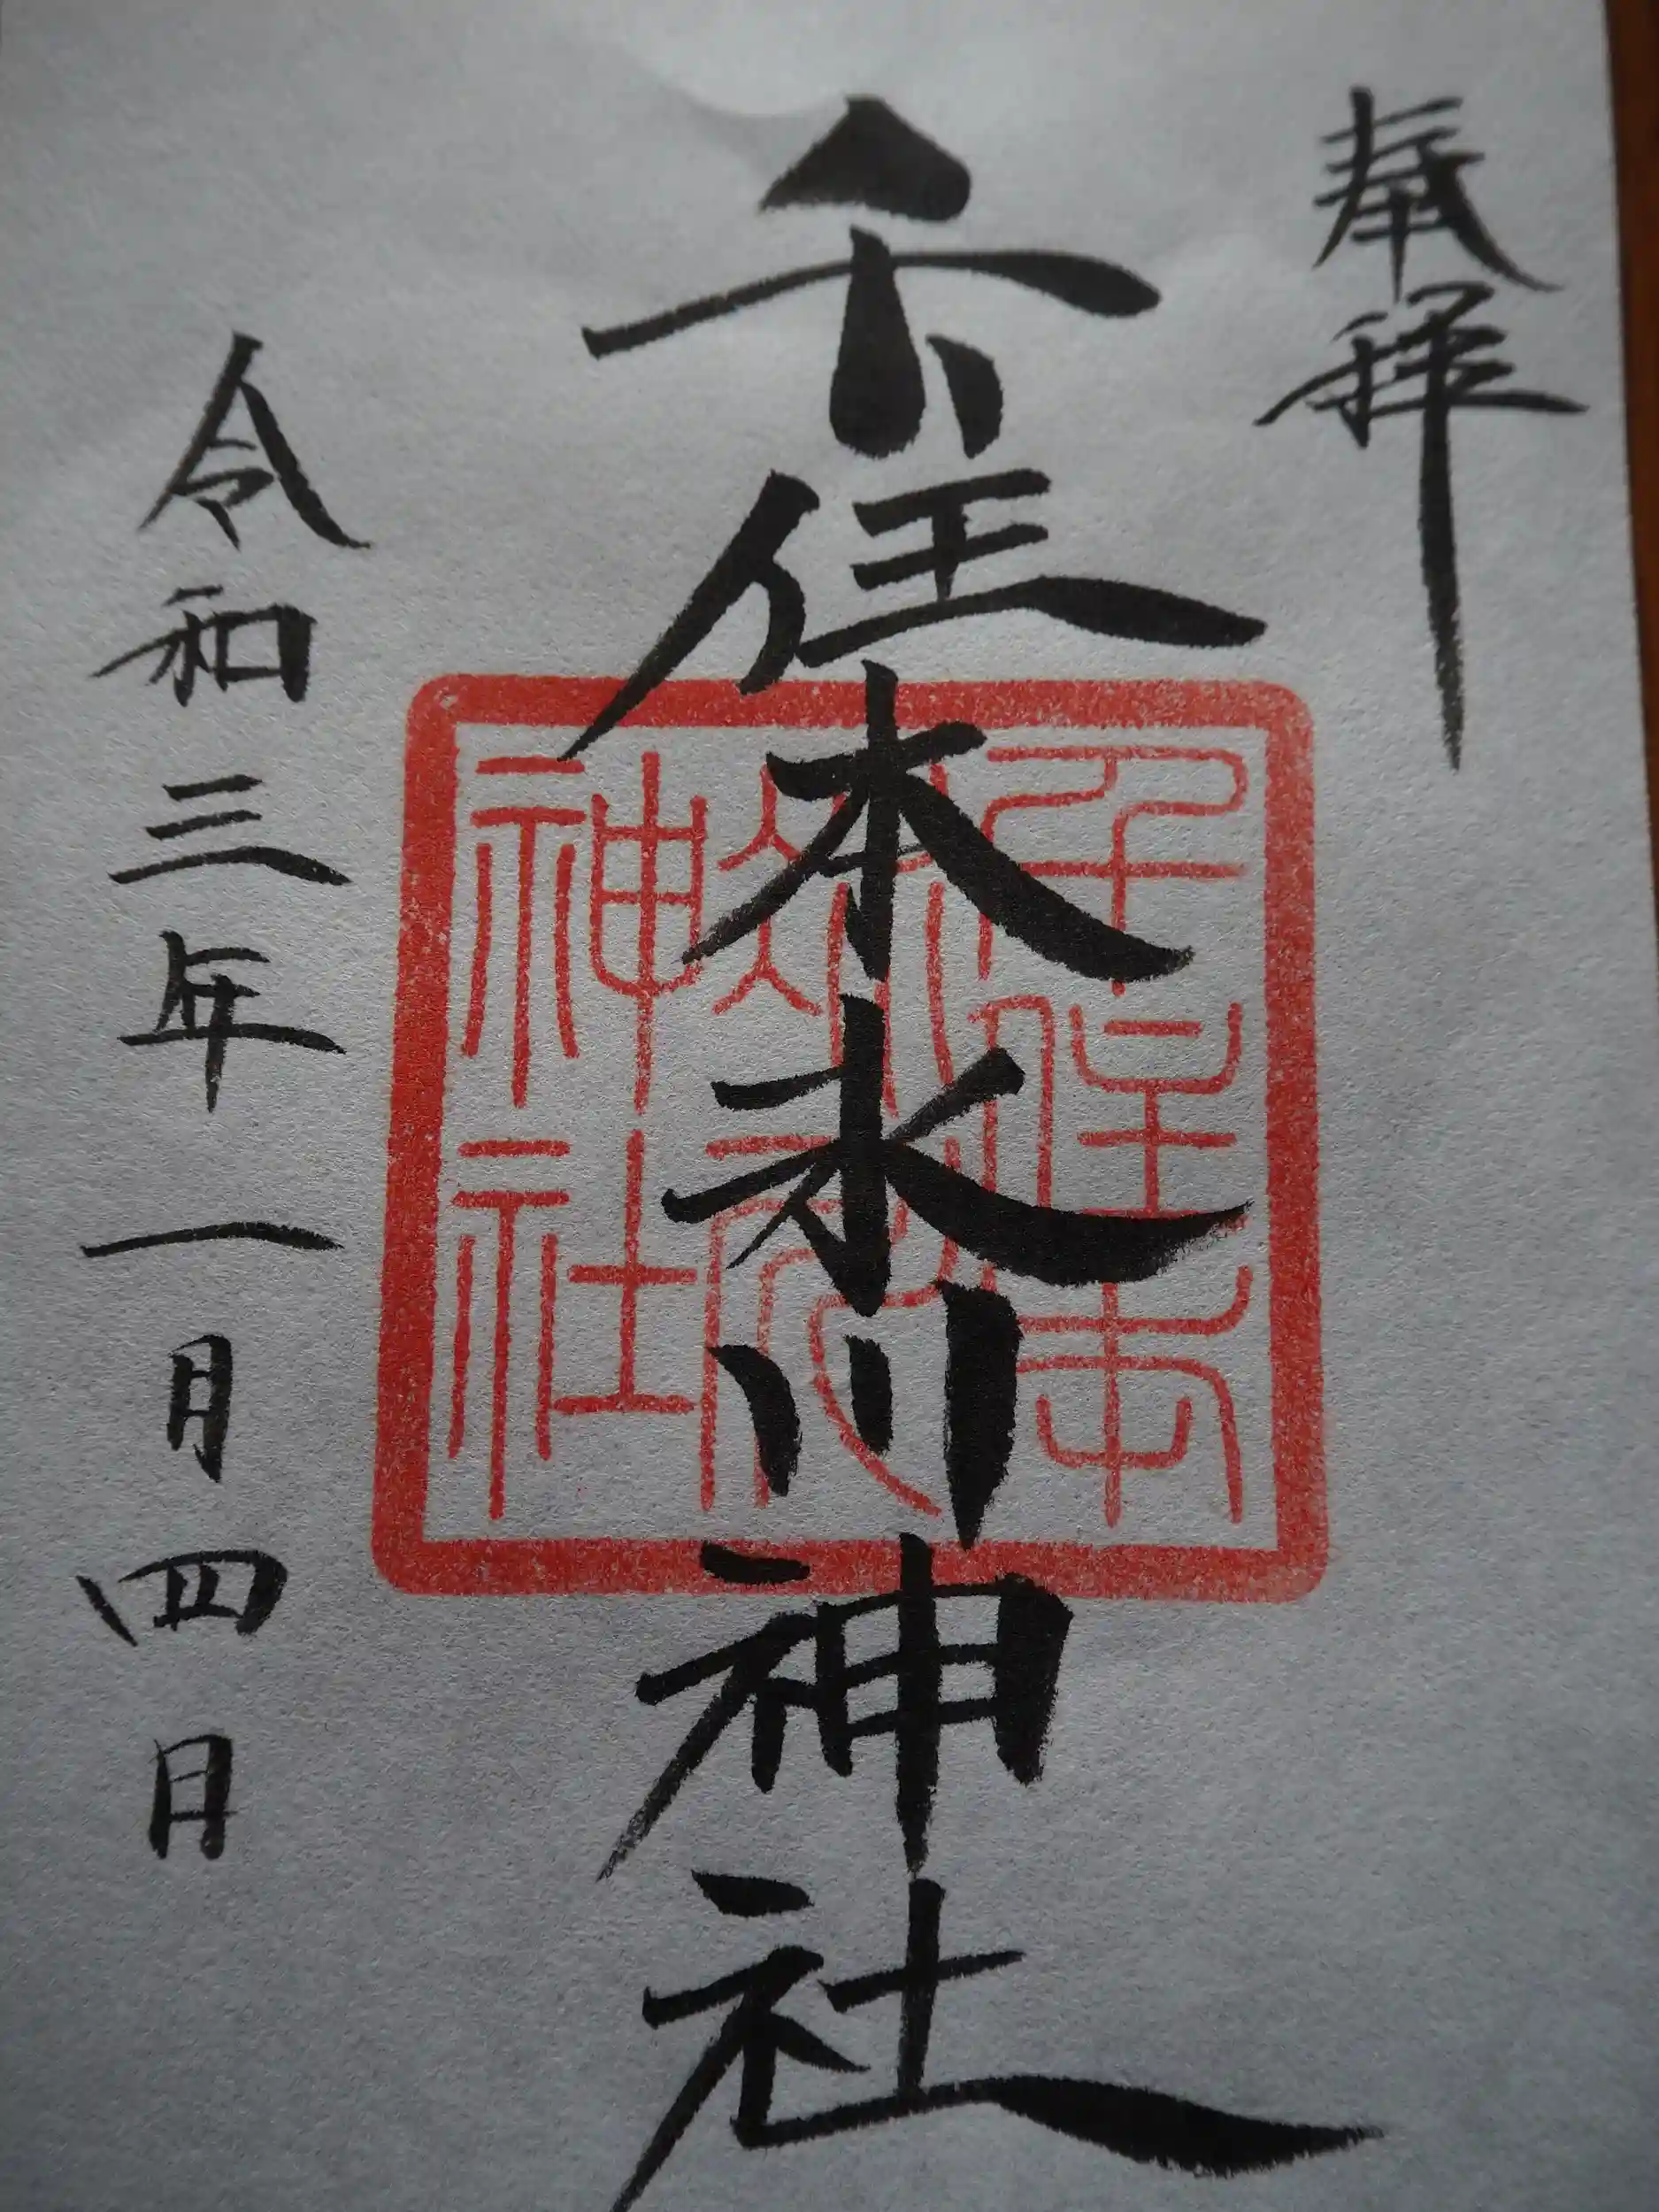 奉拝
千住本氷川神社
令和三年一月四日
千住本
神社